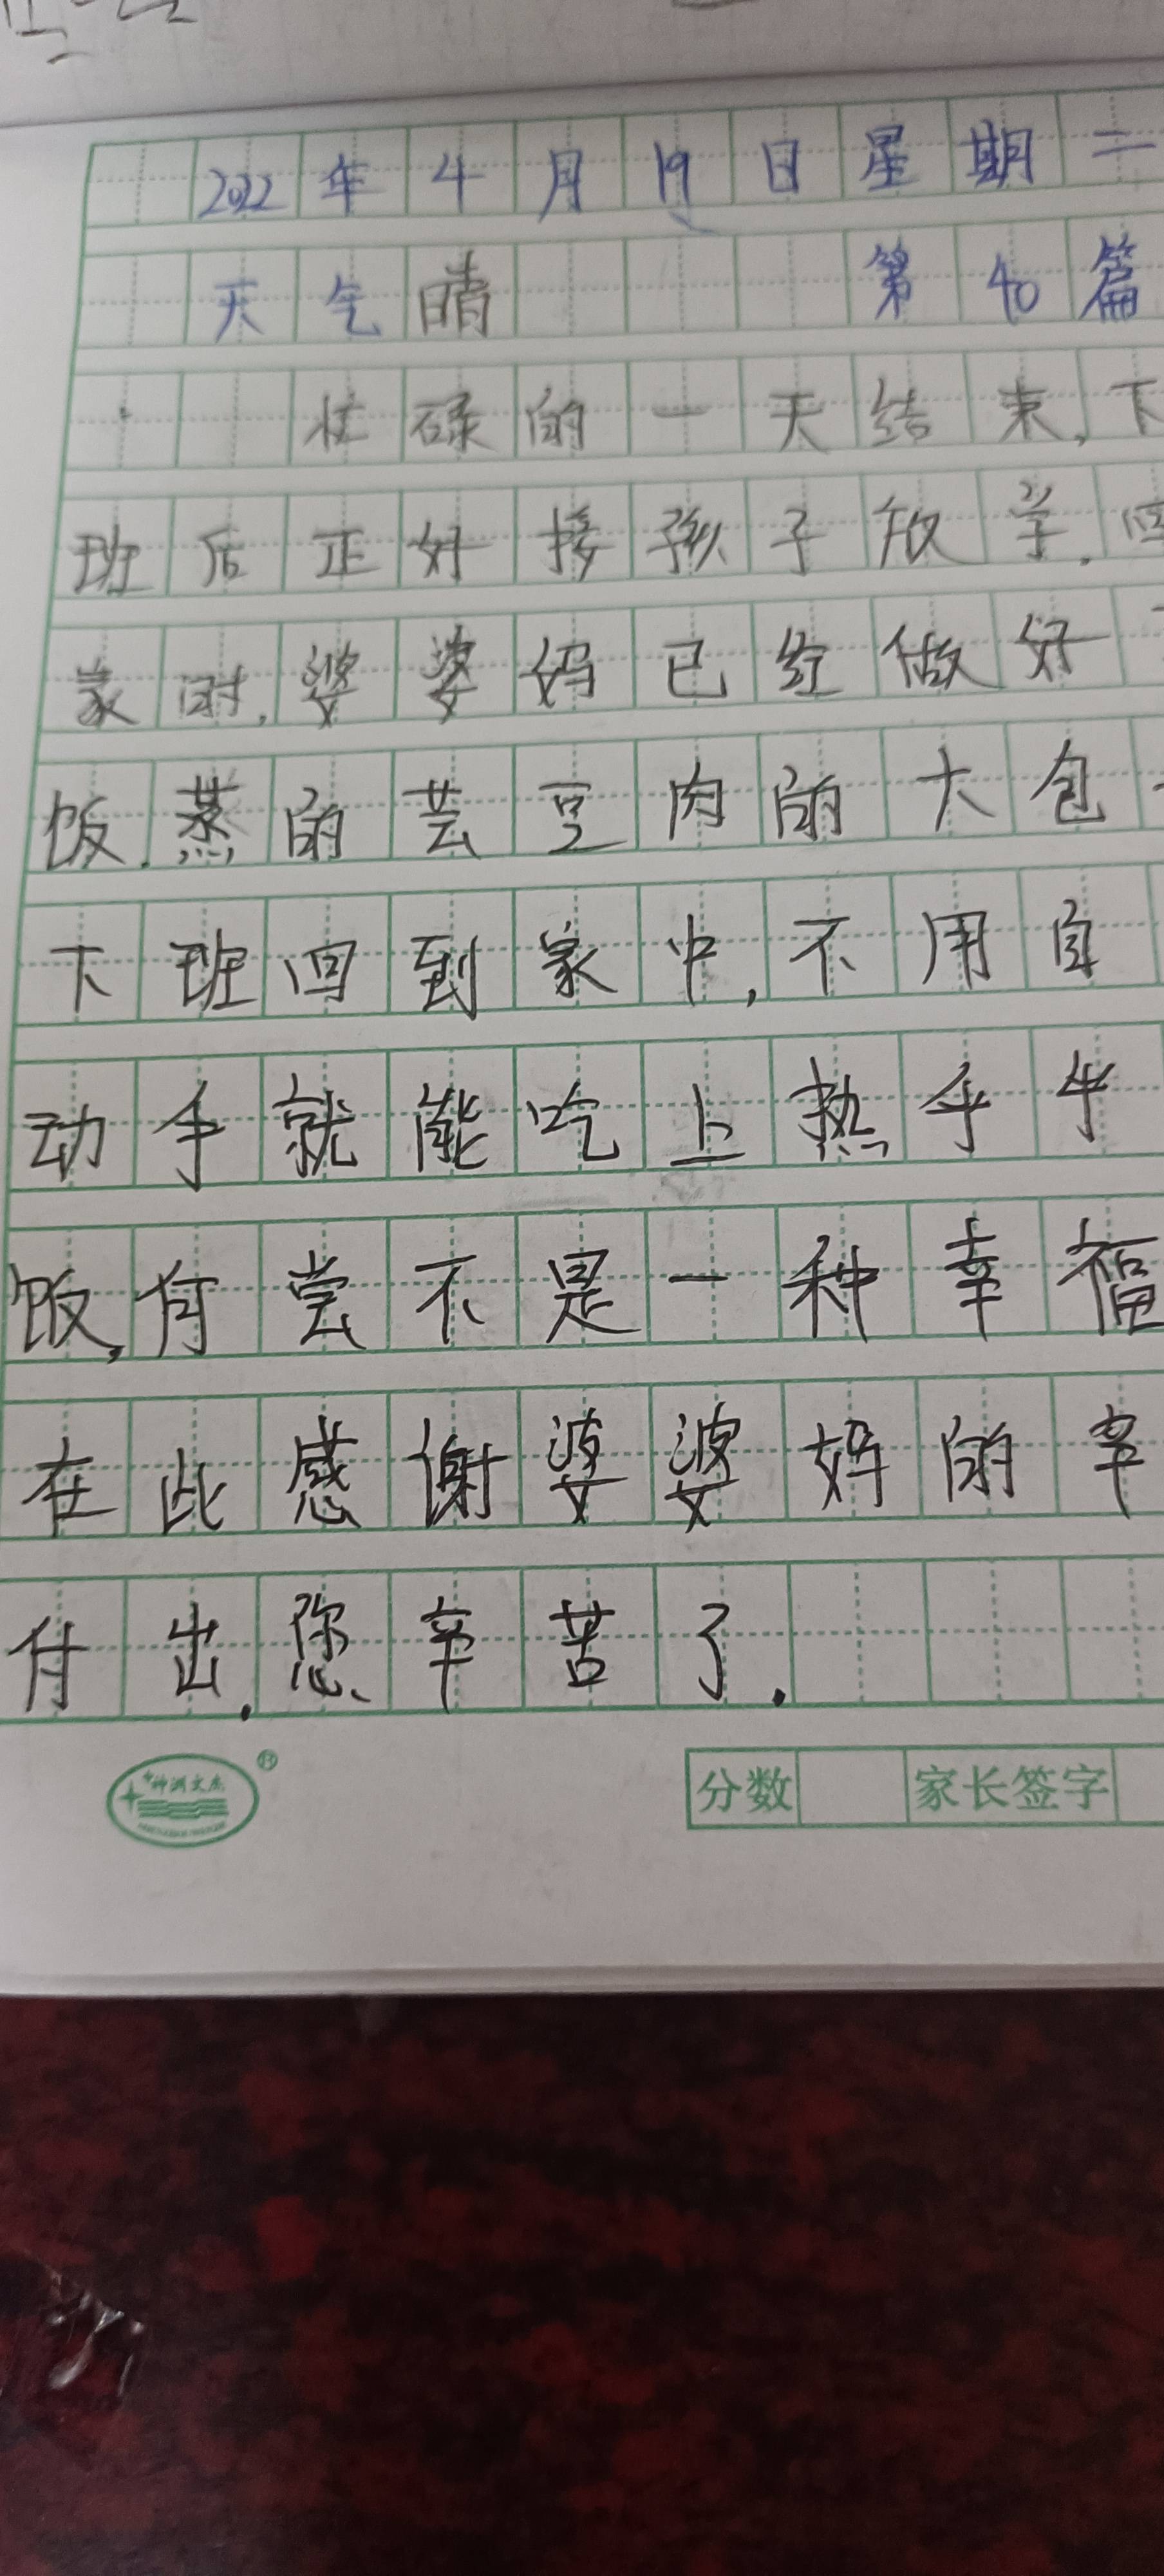 2022年4月19日星期二
天气晴 第40篇
忙碌的一天结束,下
班后正好接孩子放学.回
家时,婆婆妈已经做好
饭.蒸的芸豆肉的大包
下班回到家中,不用自
动手就能吃上热乎乎
饭,何尝不是一种幸福
在此感谢婆婆妈的辛
付出.您辛苦了.
神洲文杰
分数 家长签字